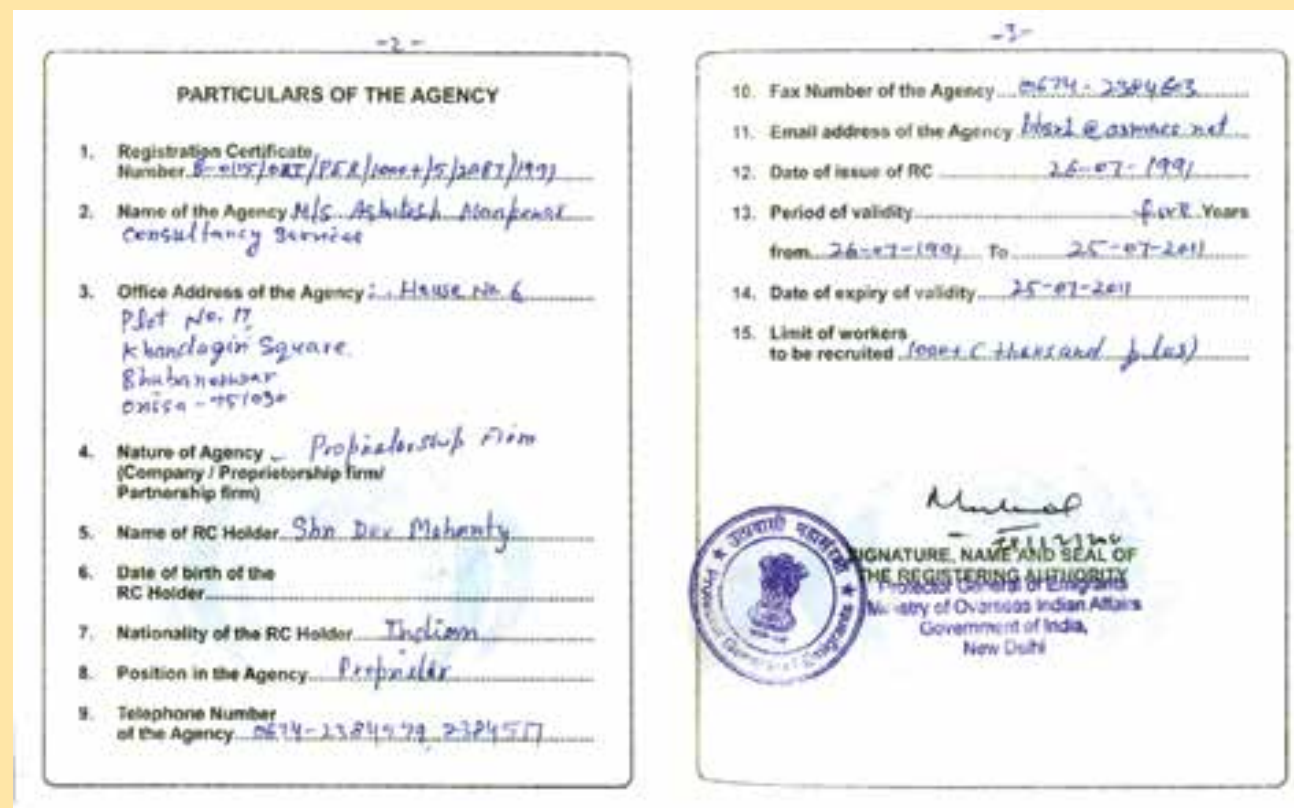 -2-
PARTICULARS OF THE AGENCY
1. Registration Certificate
Number
2. Name of the Agency M/S Manpower
Consultancy Service
3. Office Address of the Agency: House No. 6
Plot No. 17,
Khandagiri Square
Bhubaneswar
Orissa - 751030
4. Nature of Agency - Proprietorship Firm
(Company / Proprietorship firm/
Partnership firm)
5. Name of RC Holder Shri Dev Mohanty
6. Date of birth of the
RC Holder
7. Nationality of the RC Holder Indian
8. Position in the Agency Proprietor
9. Telephone Number
of the Agency
-3-
10. Fax Number of the Agency 0674-2384603
11. Email address of the Agency
12. Date of issue of RC 26-07-1991
13. Period of validity five Years
from 26-07-1991 To 25-07-2011
14. Date of expiry of validity 25-07-2011
15. Limit of workers
to be recruited 1000+ (thousand plus)
SIGNATURE, NAME AND SEAL OF
THE REGISTERING AUTHORITY
Protector General of Emigrants
Ministry of Overseas Indian Affairs
Government of India,
New Delhi
उत्प्रवासी महासंरक्षी
Protector General of Emigrants